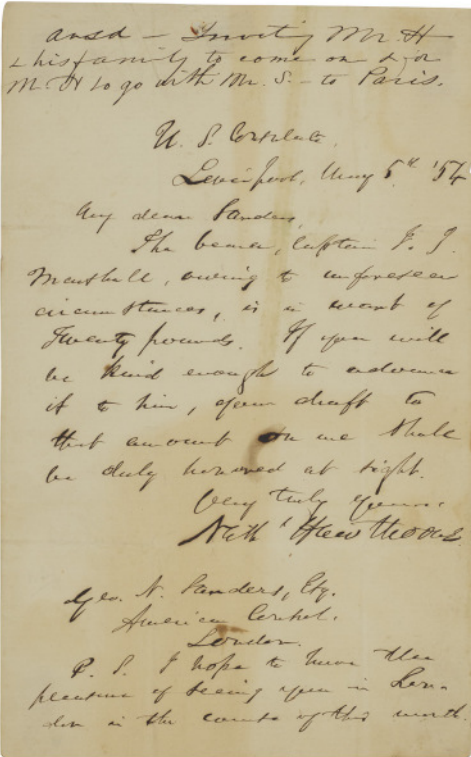 ansd — Inviting Mr. H
& his family to come on & for
Mr. H to go with Mr. S. — to Paris.
U. S. Consulate,
Liverpool, May 5th '54
My dear Sanders,
The bearer, Captain F. J.
Marshall, owing to unforeseen
circumstances, is in want of
Twenty pounds. If you will
be kind enough to advance
it to him, your draft to
that amount on me shall
be duly honored at sight.
Very truly yours,
Nathl Hawthorne.
Geo. N. Sanders, Esq.
American Consul.
London.
P. S. I hope to have the
pleasure of seeing you in Lon-
don in the course of this month.